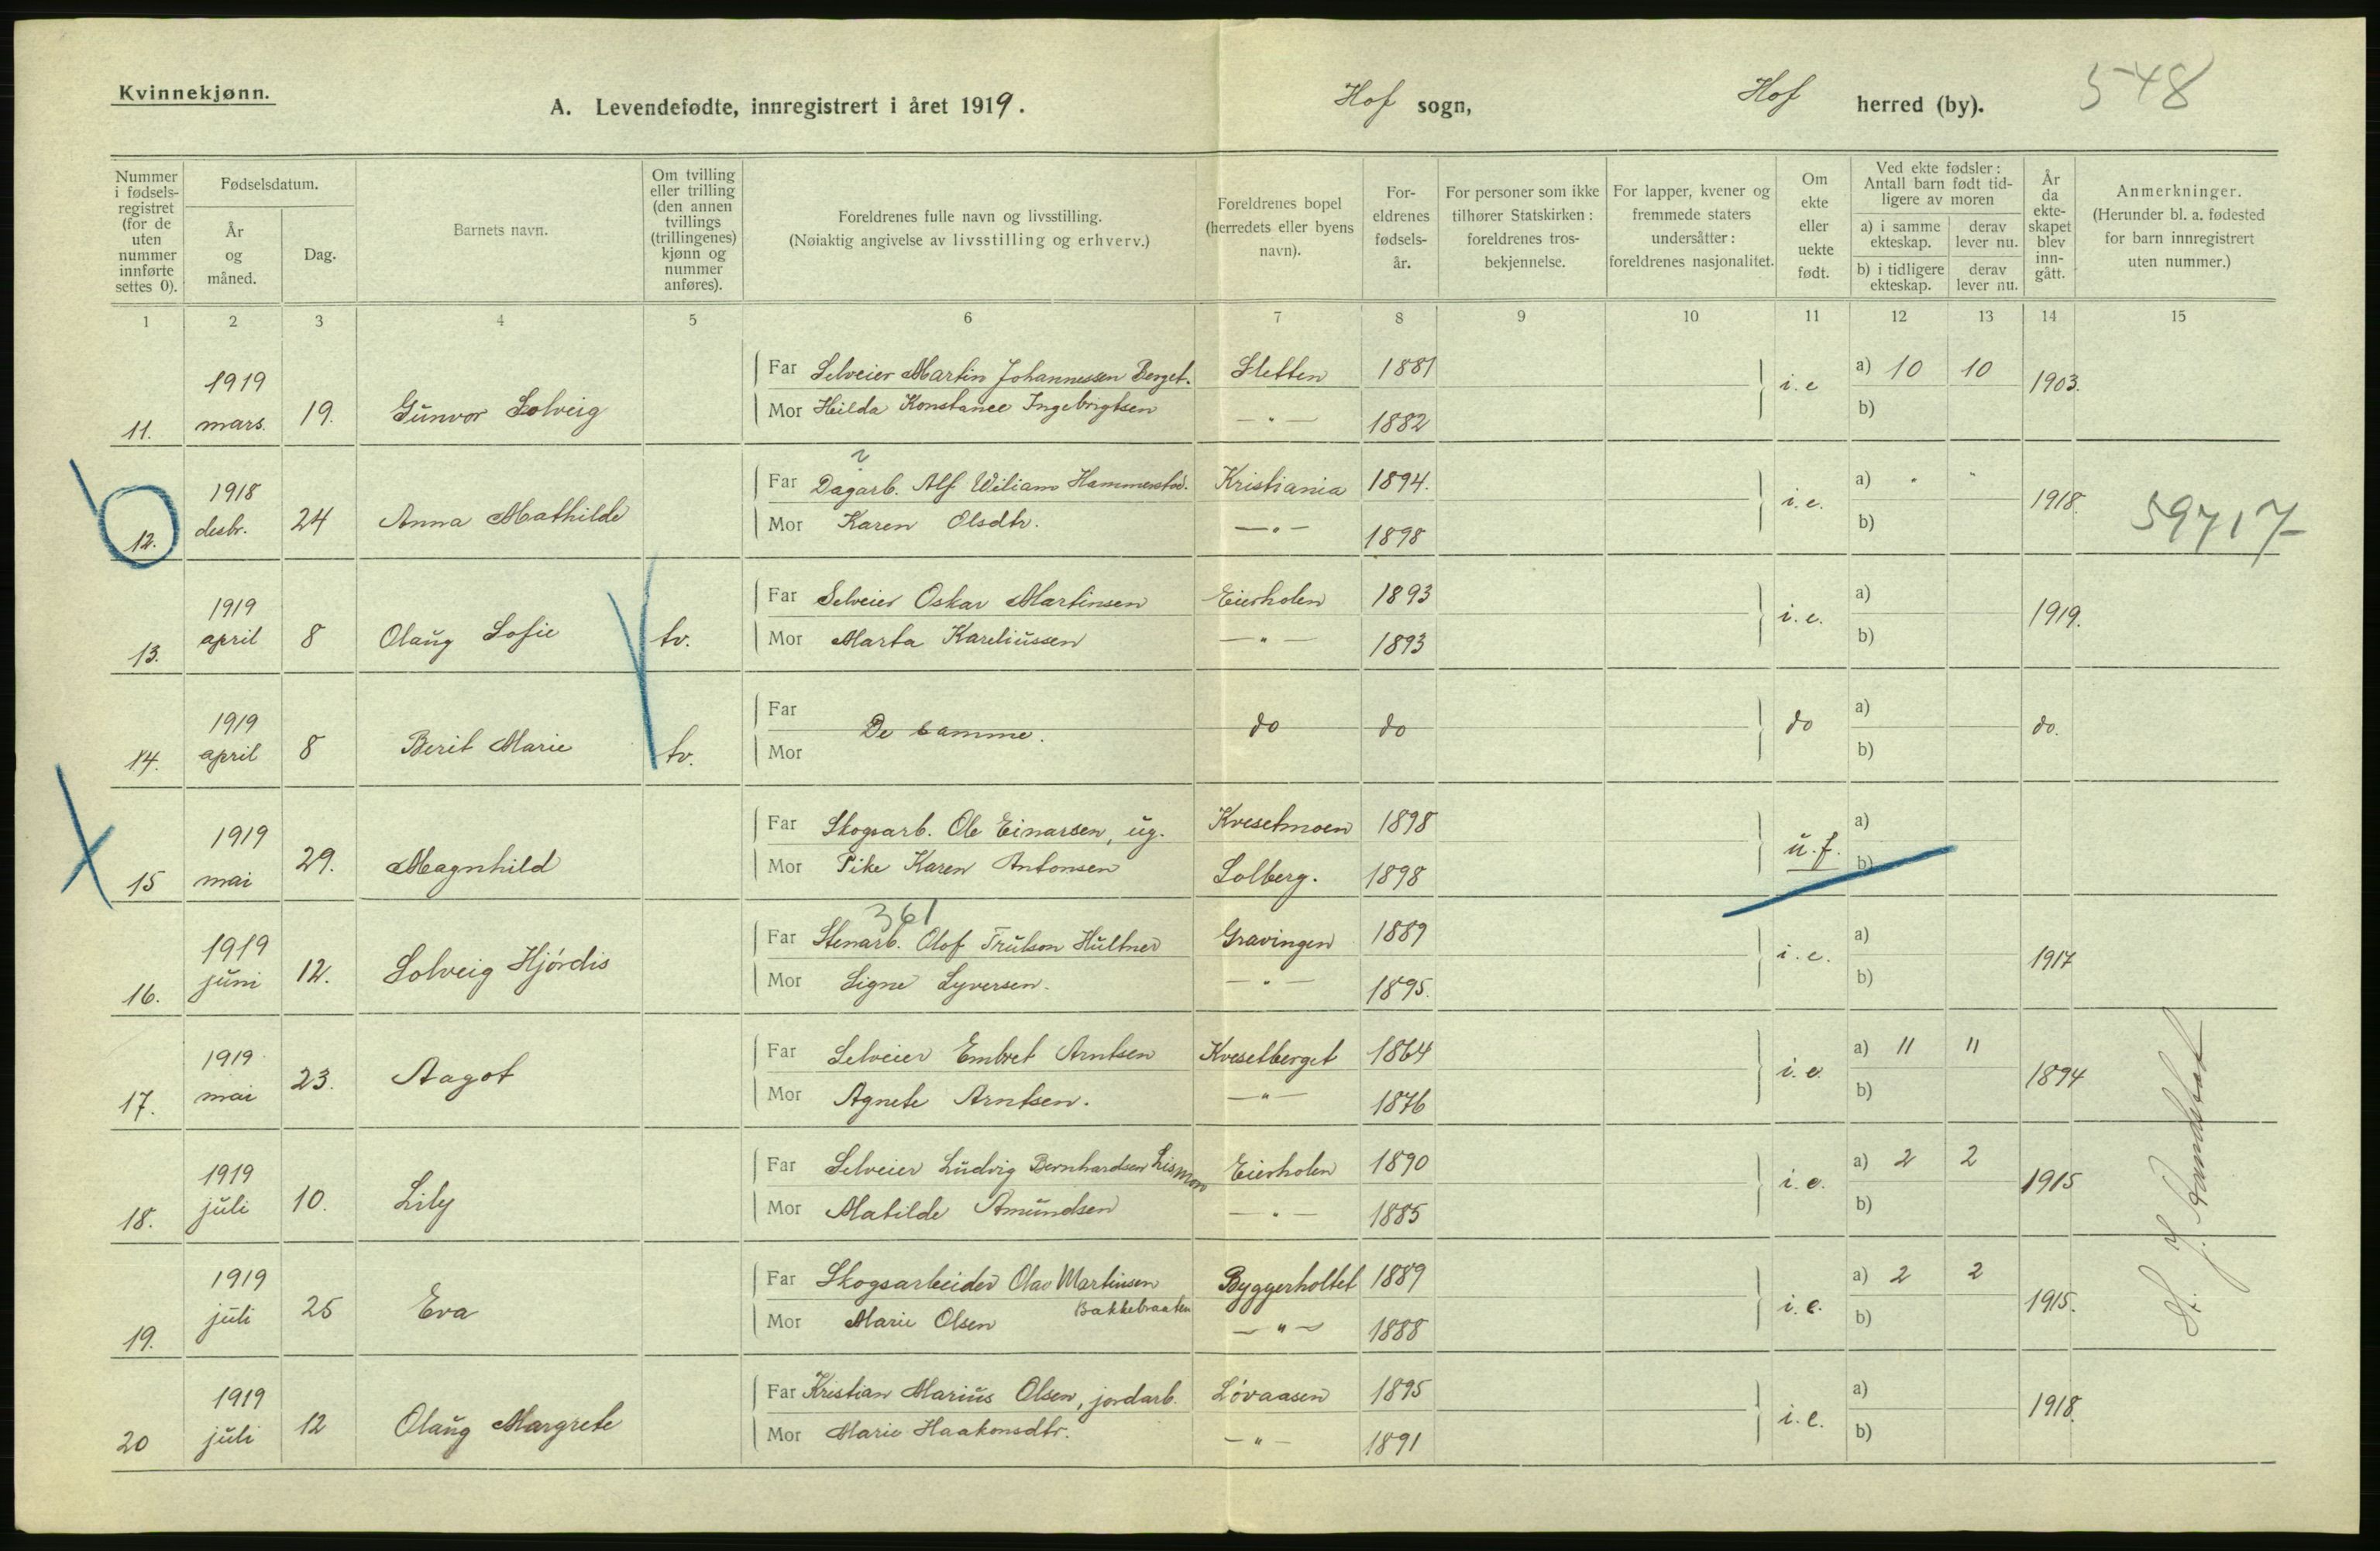 Kvinnekjønn.
A. Levendefødte, innregistrert i året 1919.
Hof sogn,
Hof herred (by).
548
Nummer i fødselsregistret (for de uten nummer innførte settes 0).
Fødselsdatum.
År og måned.
Dag.
Barnets navn.
Om tvilling eller trilling (den annen tvillings (trillingenes) kjønn og nummer anføres).
Foreldrenes fulle navn og livsstilling.
(Nøiaktig angivelse av livsstilling og erhverv.)
Foreldrenes bopel (herredets eller byens navn).
Foreldrenes fødselsår.
For personer som ikke tilhører Statskirken: foreldrenes trosbekjennelse.
For lapper, kvener og fremmede staters undersåtter: foreldrenes nasjonalitet.
Om ekte eller uekte født.
Ved ekte fødsler: Antall barn født tidligere av moren
a) i samme ekteskap.
derav lever nu.
b) i tidligere ekteskap.
derav lever nu.
År da ekteskapet blev inngått.
Anmerkninger.
(Herunder bl. a. fødested for barn innregistrert uten nummer.)
1 2 3 4 5 6 7 8 9 10 11 12 13 14 15
11. 1919 mars. 19. Gunvor Solveig
Far Selveier Martin Johannessen Berget. Sletten 1881 i. e a) 10 10 1903.
Mor Hilda Konstance Ingebrigtsen —"— 1882 b)
12. 1918 desbr. 24 Anna Mathilde
Far Dagarb. Alf Wiliam Hammerstad. Kristiania 1894. i. e. a) " " 1918.
Mor Karen Olsdtr. —"— 1898 b)
59717
13. 1919 april 8 Olaug Sofie tv.
Far Selveier Oskar Martinsen Eierholen 1893 i. e. a) 1919.
Mor Marta Kareliussen —"— 1893 b)
14. 1919 april 8 Berit Marie tv.
Far Mor De samme. do do do a) b) do.
15 1919 mai 29. Magnhild
Far Skogsarb. Ole Einarsen, ug. Kveselmoen 1898 u. f. a)
Mor Pike Karen Antonsen Solberg. 1898 b)
361
16. 1919 juni 12. Solveig Hjørdis
Far Stenarb. Olof Trulson Hultner Gravingen 1889 i. e. a) 1917
Mor Signe Syversen. —"— 1895. b)
17. 1919 mai 23. Aagot
Far Selveier Embret Arntsen Kveselberget 1864 i. e. a) 11 11 1894
Mor Agnete Arntsen. —"— 1876 b)
18. 1919 juli 10. Lily
Far Selveier Ludvig Bernhardsen Lismoen Eierholen 1890 i. e. a) 2 2 1915
Mor Matilde Amundsen —"— 1885 b)
19. 1919 juli 25 Eva
Far Skogsarbeider Olav Martinsen Bakkebraaten Byggerholtet 1889 i. e. a) 2 2 1915.
Mor Marie Olsen —"— 1888 b)
20 1919 juli 12 Olaug Margrete
Far Kristian Marius Olsen, jordarb. Løvaasen 1895 i. e. a) 1918.
Mor Marie Haakonsdtr. —"— 1891 b)